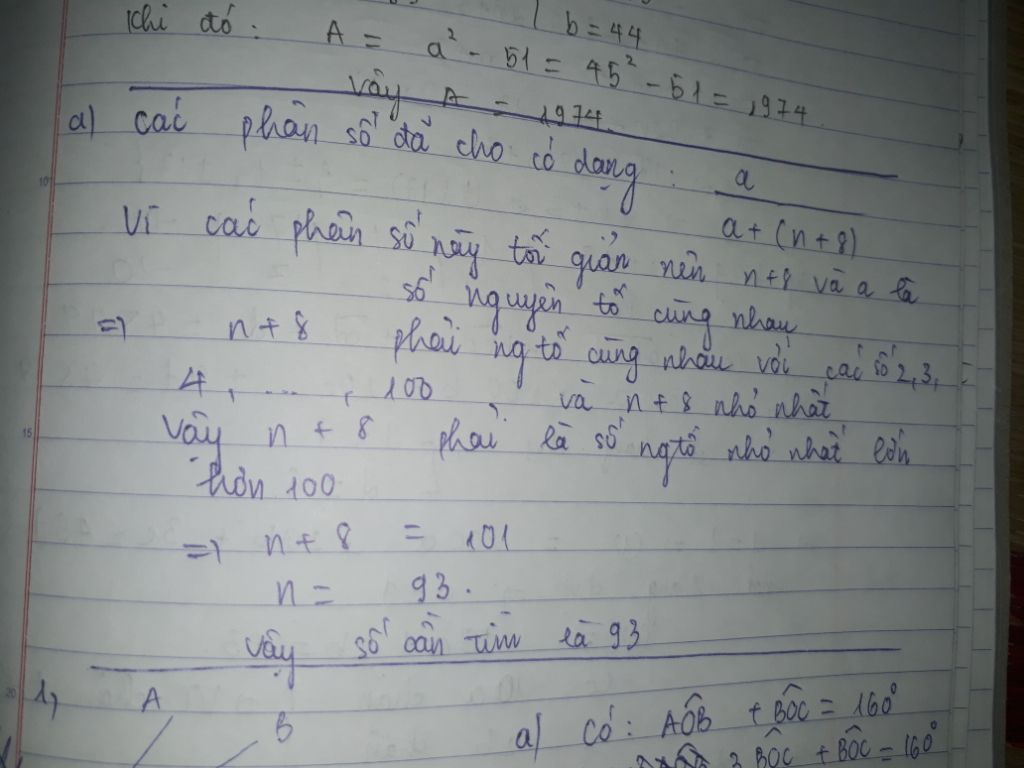 Khi đó: A = a² - 51 = 45² - 51 = 1974
b = 44
Vậy A = 1974.
a) Các phân số đã cho có dạng: a / a + (n + 8)
Vì các phân số này tối giản nên n + 8 và a là
số nguyên tố cùng nhau
=> n + 8 phải ng tố cùng nhau với các số 2, 3,
4, ..., 100 và n + 8 nhỏ nhất
Vậy n + 8 phải là số ng tố nhỏ nhất lớn
hơn 100
=> n + 8 = 101
n = 93.
Vậy số cần tìm là 93
1, A
B
a) Có: AÔB + BÔC = 160°
3 BÔC + BÔC = 160°